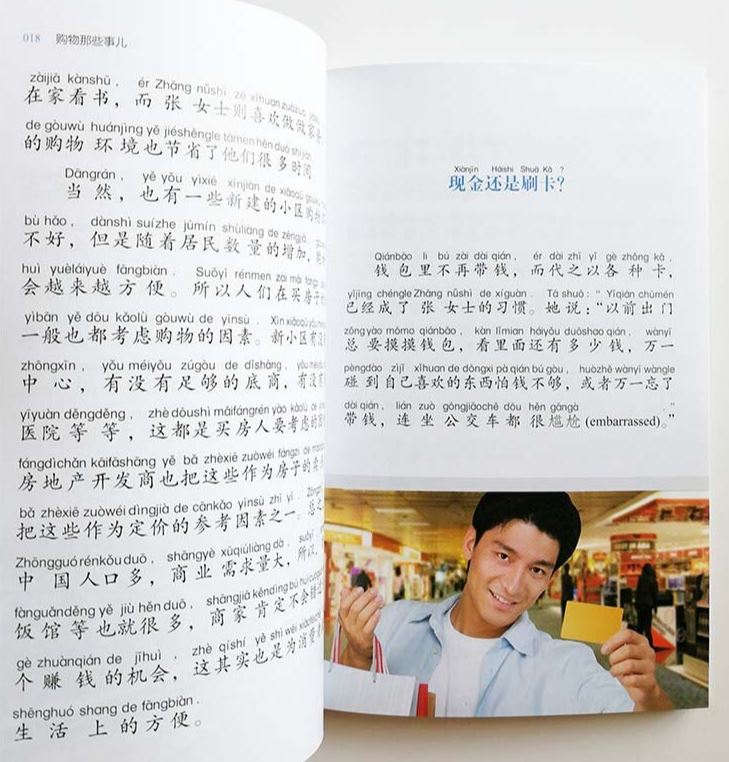 018 购物那些事儿
zàijiā kànshū, ér Zhāng nǚshì zé xǐhuan zuòzuo
在家看书，而 张 女士则喜欢做做家
de gòuwù huánjìng yě jiéshěngle tāmen hěn duō shíjiān
的购物 环境也节省了他们很多时间
Dāngrán, yě yǒu yìxiē xīnjiàn de xiǎoqū gòuwù
当 然，也有一些新建的小区购物
bù hǎo, dànshì suízhe jūmín shùliàng de zēngjiā
不好，但是随着居民数量的增加，
huì yuèláiyuè fāngbiàn. Suǒyǐ rénmen zài mǎi fángzi
会越来越方便。所以人们在买房子
yìbān yě dōu kǎolǜ gòuwù de yīnsù. Xīn xiǎoqū yǒu
一般也都考虑购物的因素。新小区有没
zhōngxīn, yǒu méiyǒu zúgòu de dǐshāng, yǒu méiyǒu
中 心，有没有足够的底商，有没有
yīyuàn děngděng, zhè dōushì mǎifángrén yào kǎolǜ de
医院 等 等，这都是买房人要考虑的
fángdìchǎn kāifāshāng yě bǎ zhèxiē zuòwéi fángzi de mài
房地产开发商也把这些作为房子的卖
bǎ zhèxiē zuòwéi dìngjià de cānkǎo yīnsù zhī yī.
把这些作为定价的参考因素之一。
Zhōngguó rénkǒu duō, shāngyè xūqiúliàng dà, suǒyǐ
中 国人口多，商业 需求量大，所以，
fànguǎn děng yě jiù hěn duō, shāngjiā kěndìng bú huì
饭馆 等也就很多，商家 肯定不会错过
gè zhuànqián de jīhuì, zhè qíshí yě shì wèi xiāofèi
个 赚 钱的机会，这其实也是为消费
shēnghuó shang de fāngbiàn.
生 活 上 的方便。
Xiànjīn Háishi Shuā Kǎ ?
现金还是刷卡？
Qiánbāo li bú zài dài qián, ér dài zhī yǐ gè zhǒng kǎ,
钱 包里不再带钱，而代之以各 种卡，
yǐjīng chéngle Zhāng nǚshì de xíguàn. Tā shuō: "Yǐqián chūmén
已经成了 张 女士的习惯。她 说：“以前出门
zǒng yào mōmo qiánbāo, kàn lǐmian háiyǒu duōshao qián, wànyī
总 要摸摸钱包，看里面还有多少钱，万一
pèngdào zìjǐ xǐhuan de dōngxi pà qián bú gòu, huòzhě wànyī wàngle
碰到自己喜欢的东西怕钱不够，或者万一忘了
dài qián, lián zuò gōnggòngqìchē dōu hěn gāngà ."
带钱，连坐 公交车都 很尴尬 (embarrassed)。”